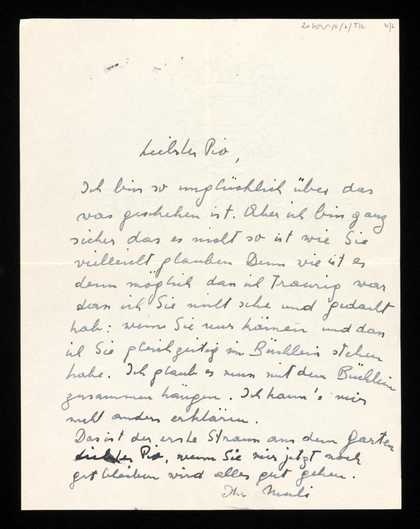 Liebster Pio,
Ich bin so unglücklich über das
was geschehen ist. Aber ich bin ganz
sicher das es nicht so ist wie Sie
vielleicht glauben Denn wie ist es
denn möglich das ich Traurig war
dass ich Sie nicht sehe und gedacht
hab: wenn Sie nur kämen und das
ich Sie gleichzeitig im Büchlein stehen
habe. Ich glaub es muss mit dem Büchlein
zusammen hängen. Ich kann's mir
nicht anders erklären.
Das ist der erste Strauss aus dem Garten
Liebster Pio, wenn Sie mir jetzt noch
gut bleiben wird alles gut gehen.
Ihr